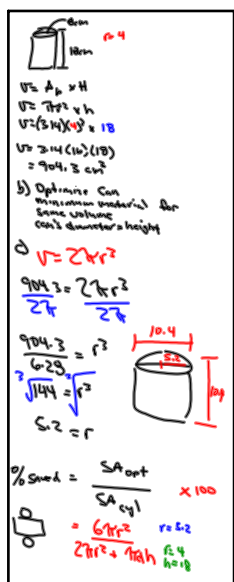 8cm
r=4
18cm
V= A_b × H
V= πr² × h
V=(3.14)(4)² × 18
V= 3.14(16)(18)
= 904.3 cm³
b) Optimize Can
minimum material for
same volume
can's diameter = height
c) V=2πr³
904.3 = 2πr³
2π 2π
904.3 = r³
6.29
³√144 = ³√r³
5.2 = r
10.4
5.2
10.4
% Saved = SA opt × 100
SA cyl
= 6πr² r=5.2
2πr² + πdh r=4
h=18